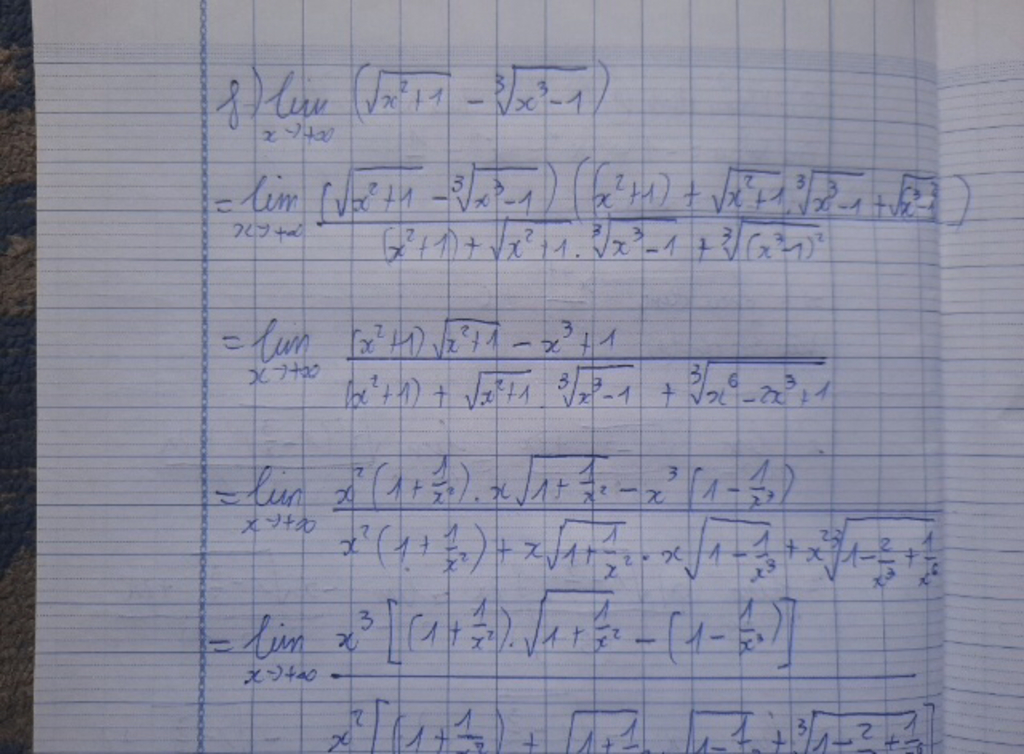 f) lim x→+∞ (√(x²+1) - ³√(x³-1))
= lim x→+∞ (√(x²+1) - ³√(x³-1)) ((x²+1) + √(x²+1) . ³√(x³-1) +
(x²+1) + √(x²+1) . ³√(x³-1) + ³√((x³-1)²)
= lim x→+∞ (x²+1) √(x²+1) - x³ + 1
(x²+1) + √(x²+1) . ³√(x³-1) + ³√(x⁶-2x³+1)
= lim x→+∞ x² (1 + 1/x²) . x √(1 + 1/x²) - x³ (1 - 1/x³)
x² (1 + 1/x²) + x √(1 + 1/x²) . x √(1 - 1/x³) + x² ³√(1 - 2/x³ + 1/x⁶)
= lim x→+∞ x³ [(1 + 1/x²) . √(1 + 1/x²) - (1 - 1/x³)]
x² [(1 + 1/x²) +